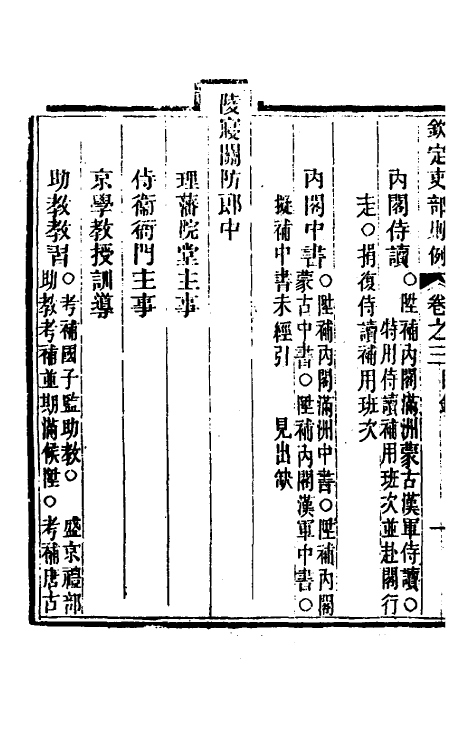 欽定吏部則例 卷之三目錄 一
內閣侍讀○陞補內閣滿洲蒙古漢軍侍讀○
特用侍讀補用班次並赴閣行
走○捐復侍讀補用班次
內閣中書○陞補內閣滿洲中書○陞補內閣
蒙古中書○陞補內閣漢軍中書○
擬補中書未經引 見出缺
陵寢關防郎中
理藩院堂主事
侍衞衙門主事
京學教授訓導
助教教習○考補國子監助教○ 盛京禮部
助教考補並期滿候陞○考補唐古